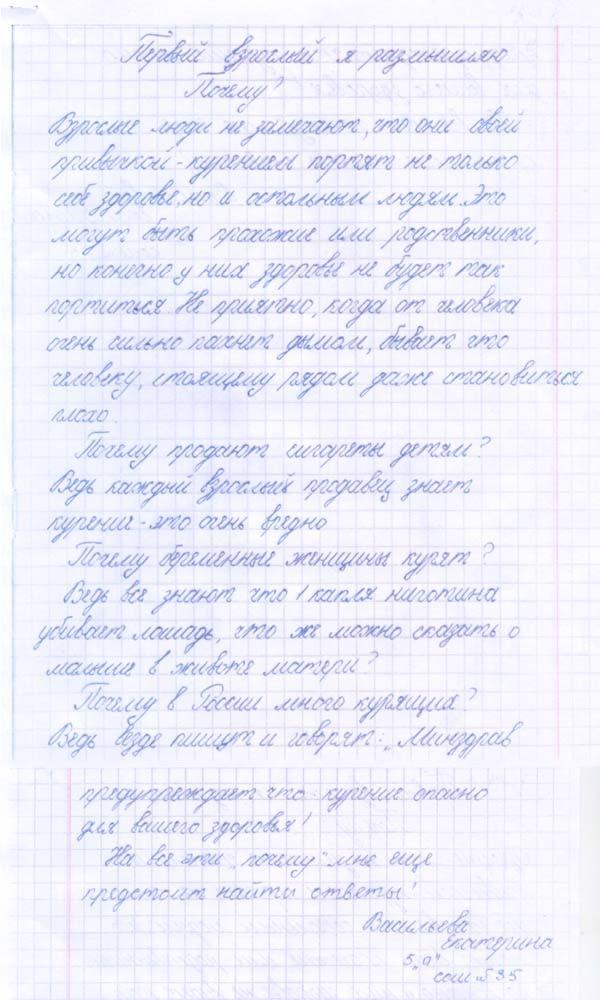 Первый взрослый я размышляю
Почему?
Взрослые люди не замечают, что они своей
привычкой - курением портят не только
себе здоровье, но и остольным людям. Это
могут быть прохожие или родственники,
но конечно у них здоровье не будет так
портиться. Не приятно, когда от человека
очень сильно пахнет дымом, бывает что
человеку, стоящему рядом даже становиться
плохо.
Почему продают сигареты детям?
Ведь каждый взрослый продавец знает
курение - это очень вредно
Почему беременные женщины курят?
Ведь все знают что 1 капля ниготина
убивает лошадь, что же можно сказать о
малыше в животе матери?
Почему в России много курящих?
Ведь везде пишут и говорят: „Минздрав
предупреждает что курение опасно
для вашего здоровья!
На все эти „почему" мне ещё
предстоит найти ответы!
Васильева
Екатерина
5 „а"
сош №35